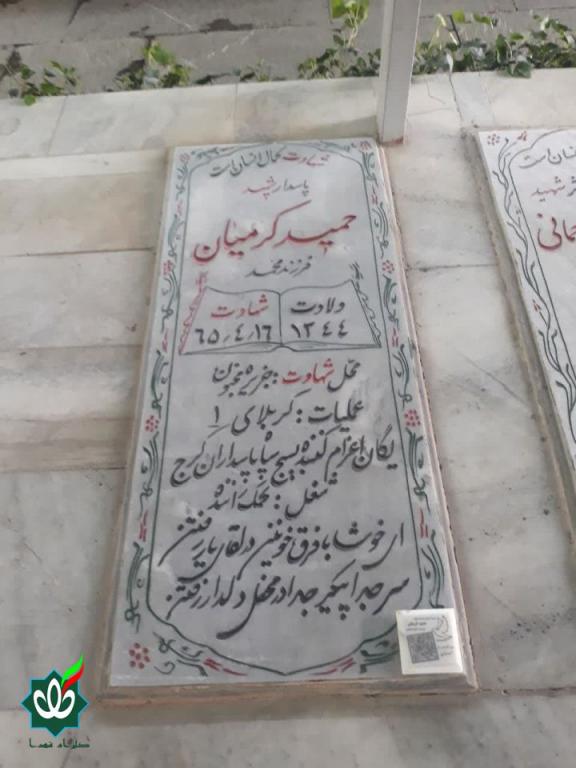 شهادت کمال انسان است
پاسدار شهید
حمید کرمیان
فرزند محمد
ولادت
۱۳۴۴
شهادت
۶۵/۴/۱۶
محل شهادت: جزیره مجنون
عملیات: کربلای ۱
یگان اعزام کننده بسیج سپاه پاسداران کرج
شغل: کمک راننده
ای خوشا با فرق خونین در لقای یار رفتن
سر جدا پیکر جدا در محفل دلدار رفتن
انسان است
شهید
گلزار شهدا